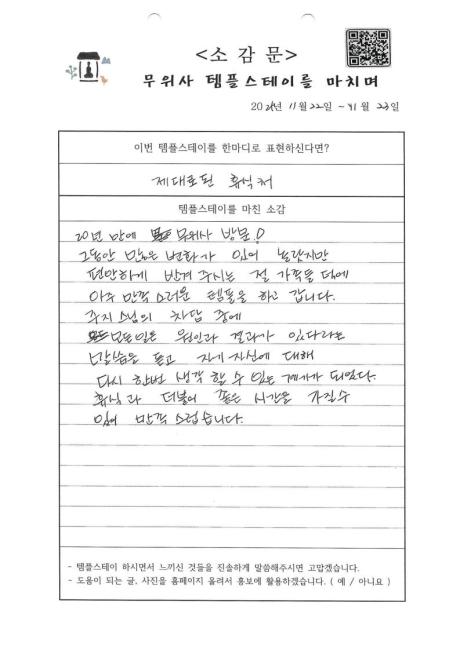 <소 감 문>
무위사 템플스테이를 마치며
2024년 11월 22일 ~ 11월 23일
이번 템플스테이를 한마디로 표현하신다면?
제대로된 휴식처
템플스테이를 마친 소감
20년 만에 무위사 방문!
그동안 많은 변화가 있어 놀랐지만
편안하게 반겨 주시는 절 가족들 덕에
아주 만족 스러운 템플을 하고 갑니다.
주지스님의 차담 중에
모든일은 원인과 결과가 있다라는
말씀을 듣고 자기 자신에 대해
다시 한번 생각 할 수 있는 계기가 되었다.
휴식과 더불어 좋은 시간을 가질수
있어 만족 스럽습니다.
- 템플스테이 하시면서 느끼신 것들을 진솔하게 말씀해주시면 고맙겠습니다.
- 도움이 되는 글, 사진을 홈페이지 올려서 홍보에 활용하겠습니다. ( 예 / 아니요 )